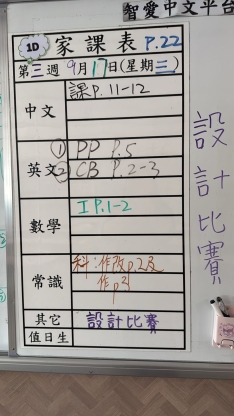 智愛中文平台
1D 家課表 P.22
第三週 9月17日(星期三)
中文 課P.11-12
英文 ① PP P.5
② CB P.2-3
數學 I P.1-2
常識 科:作改p.2及
作p2
其它 設計比賽
值日生
設計比賽